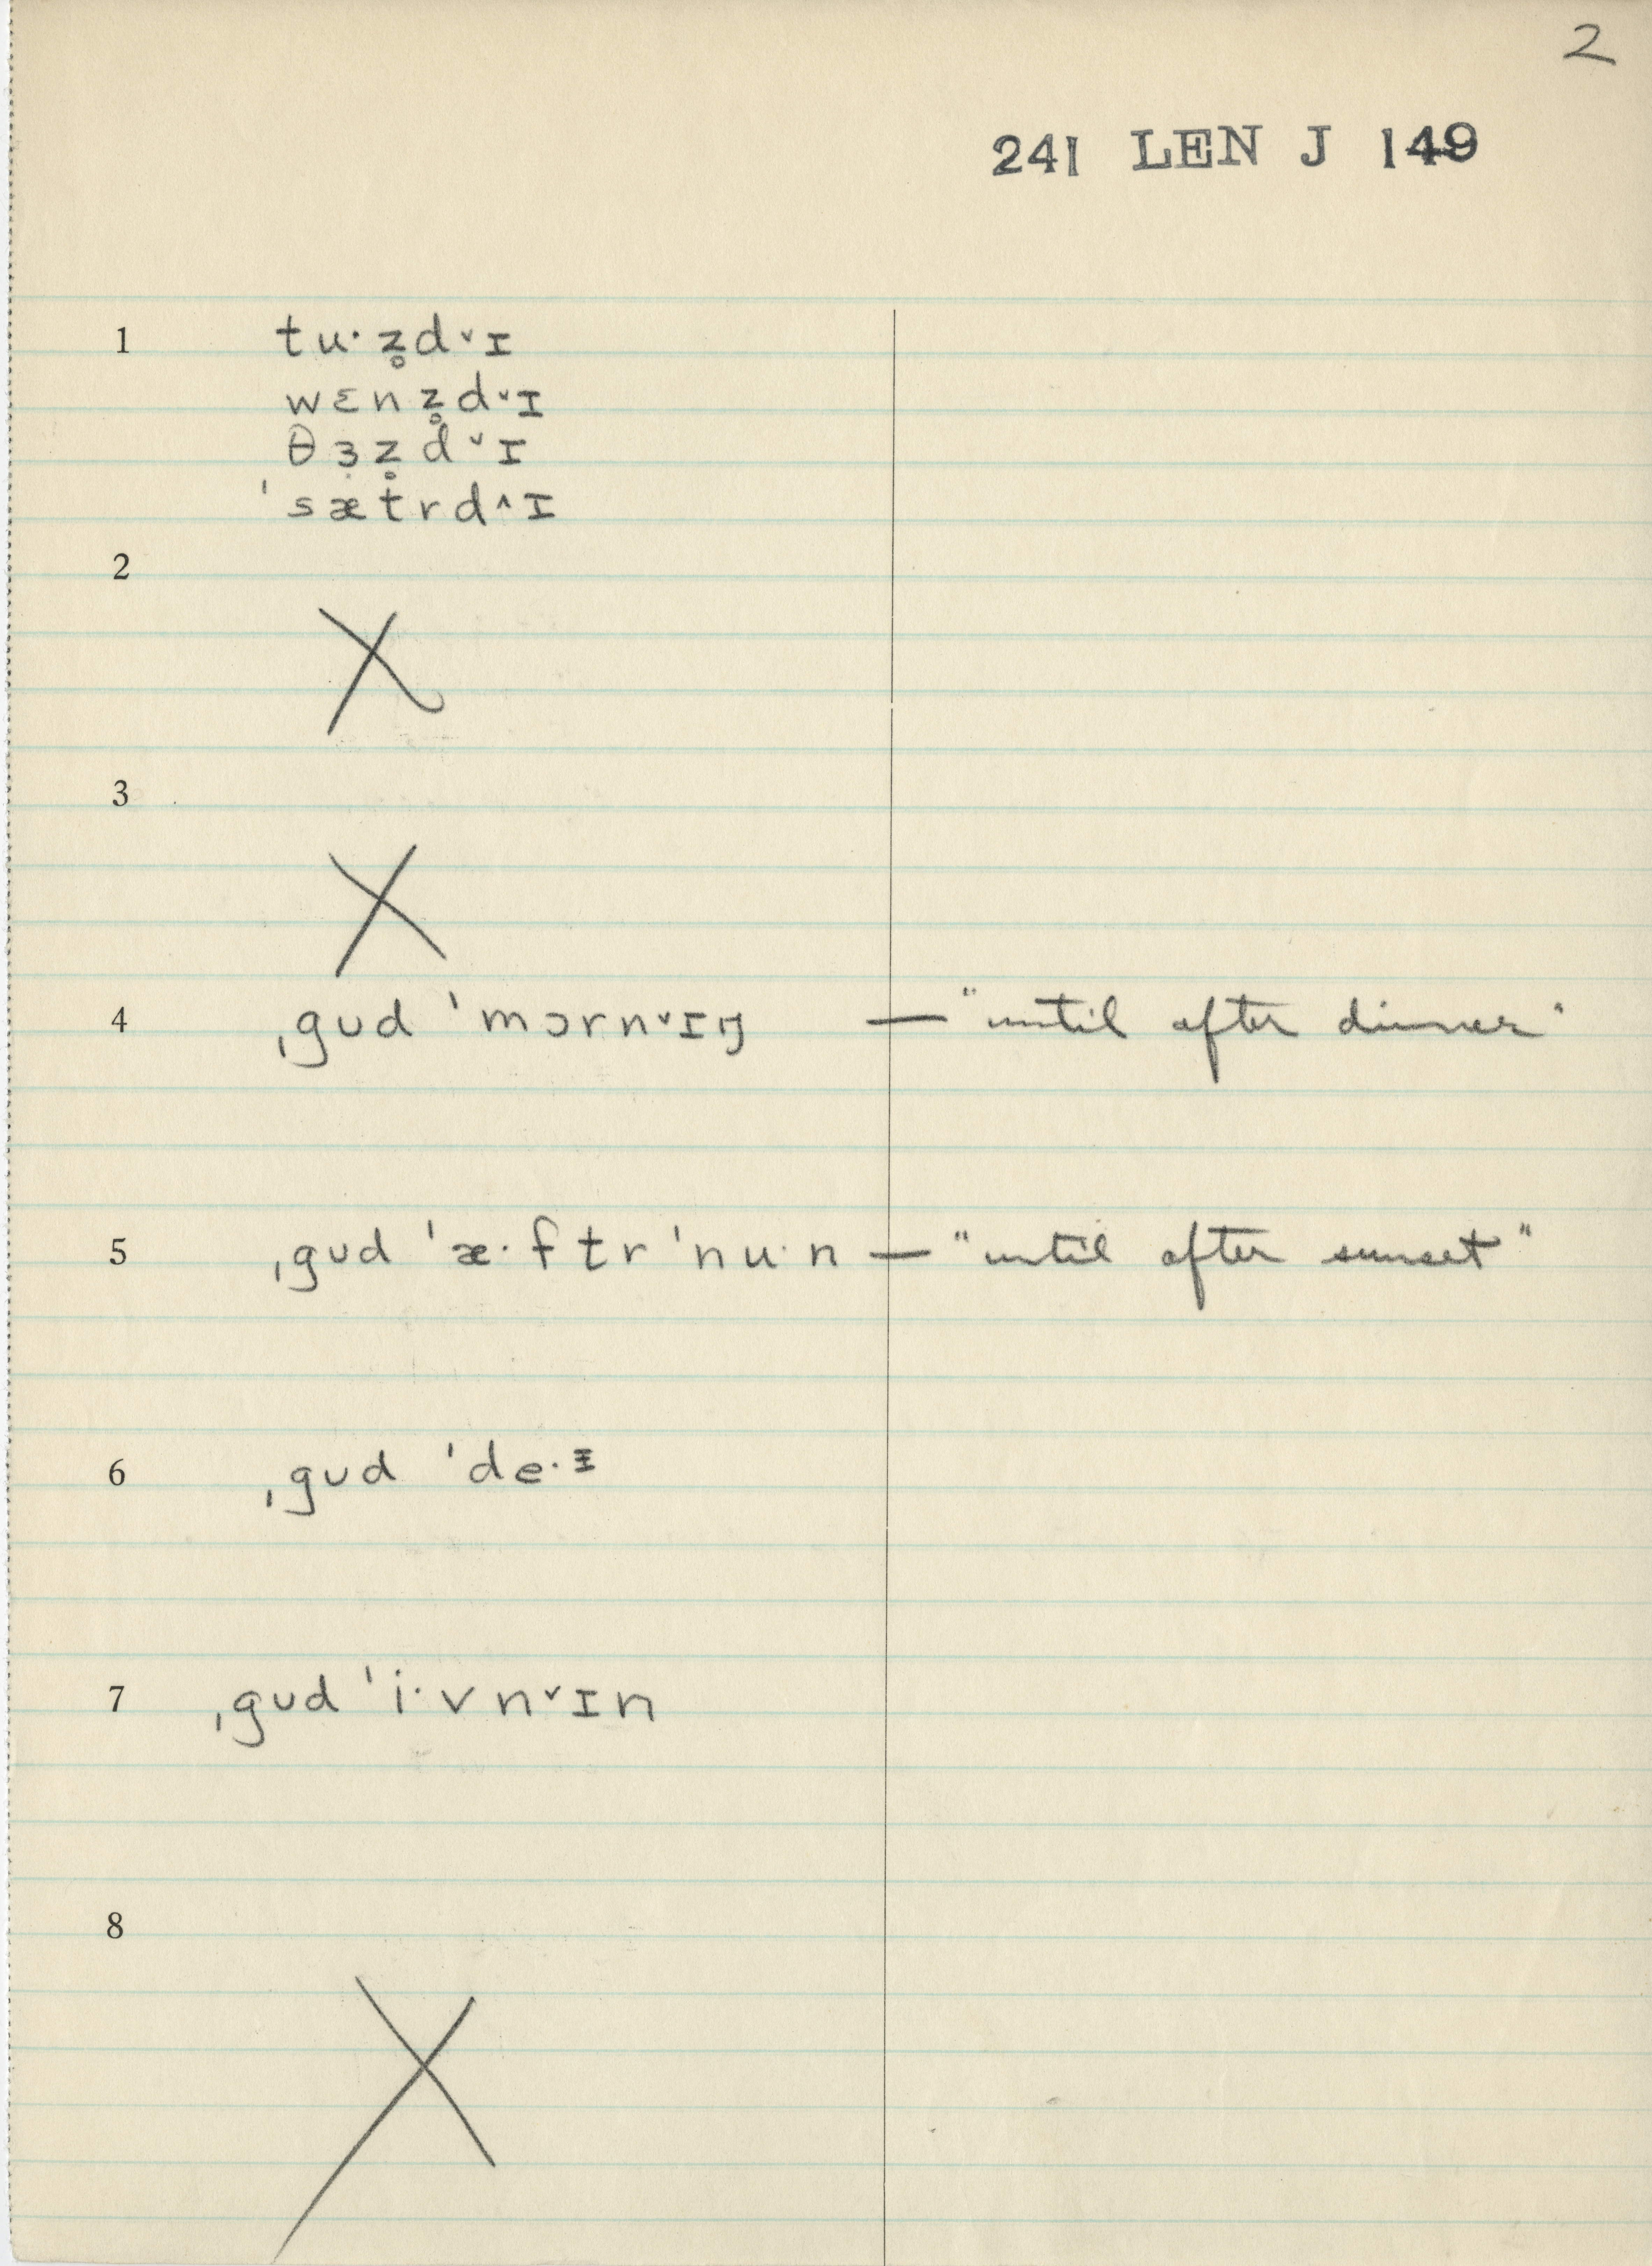 2
241 LEN J 149
1 tu·z̥dˇɪ
wɛnz̥dˇɪ
θɜ̣z̥dˇɪ
ˈsætrd^ɪ
2
X
3
X
4 ˌgʊd ˈmɔrnˇɪŋ — "until after dinner"
5 ˌgʊd ˈæ·ftrˈnu·n — "until after sunset"
6 ˌgʊd ˈde·ɪ
7 ˌgʊd ˈi·vnˇɪn
8
X